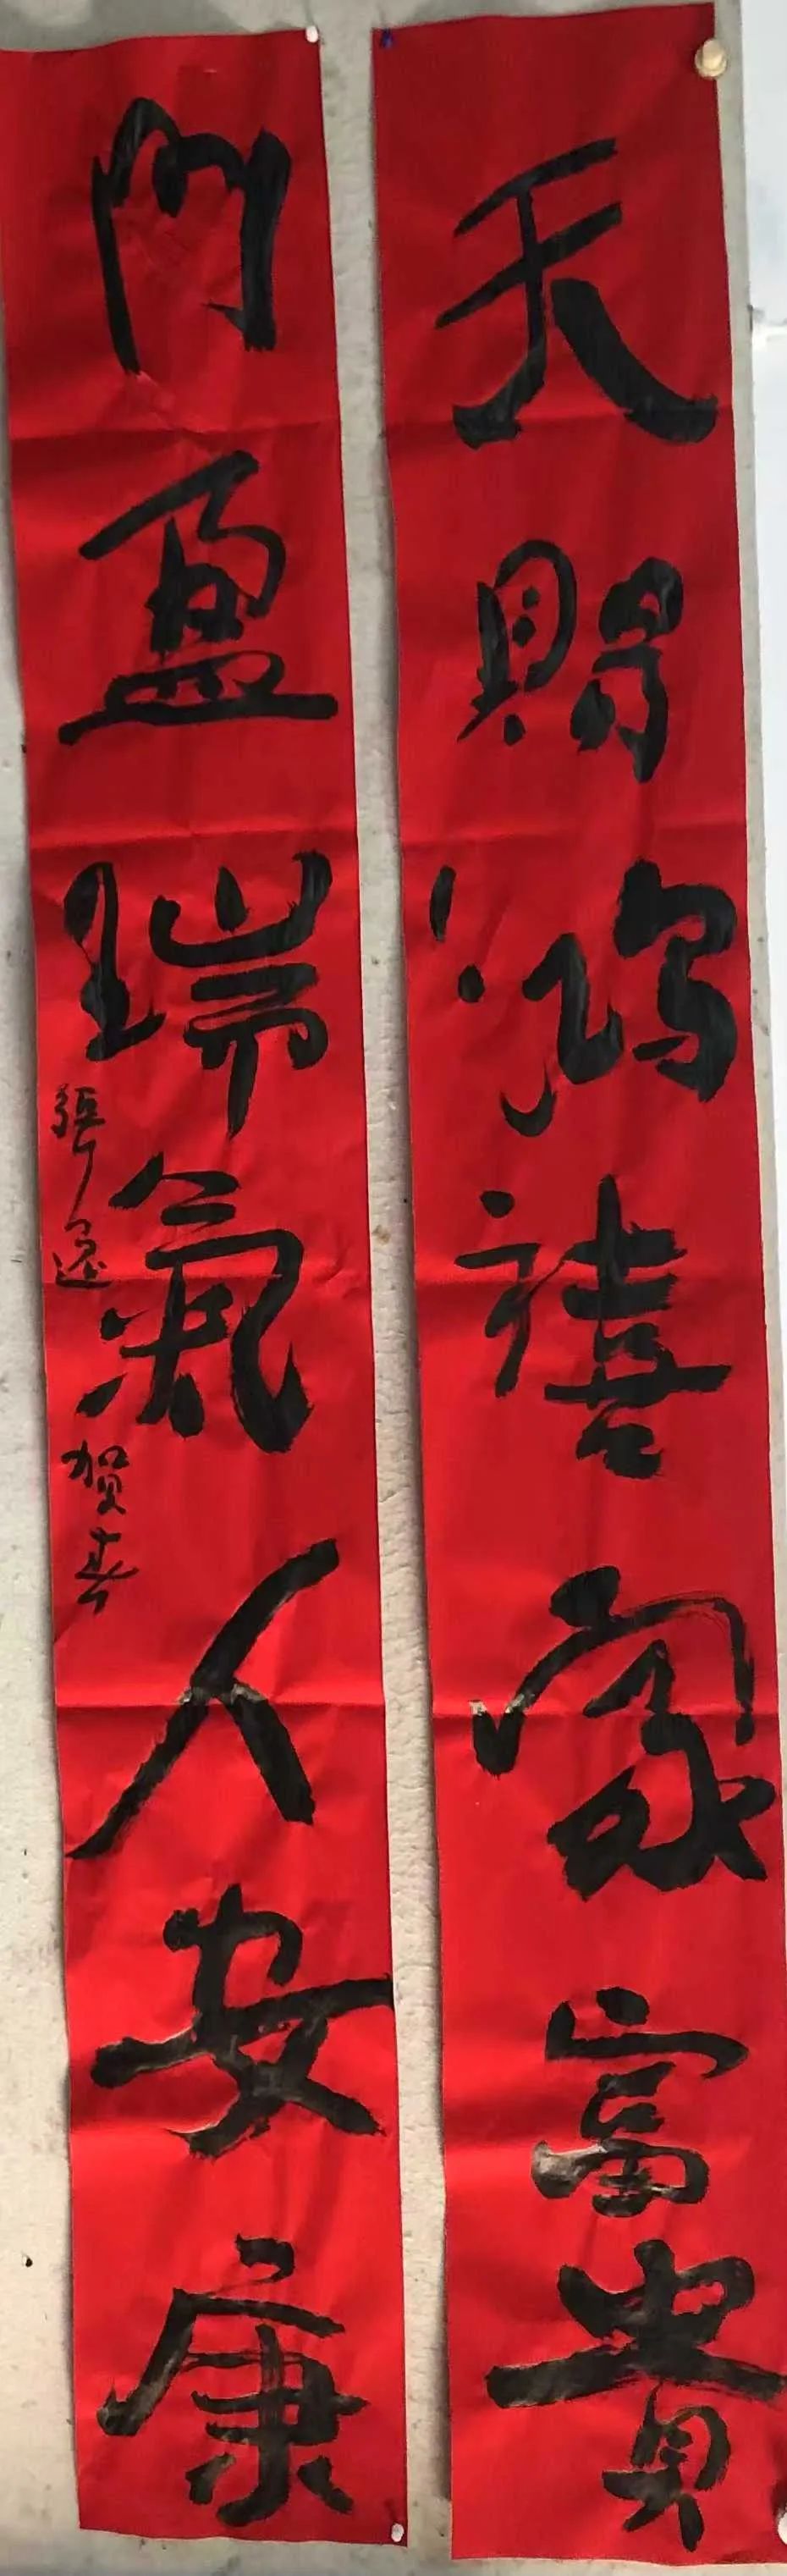 天賜鴻禧家富貴
門盈瑞氣人安康
張遠賀春